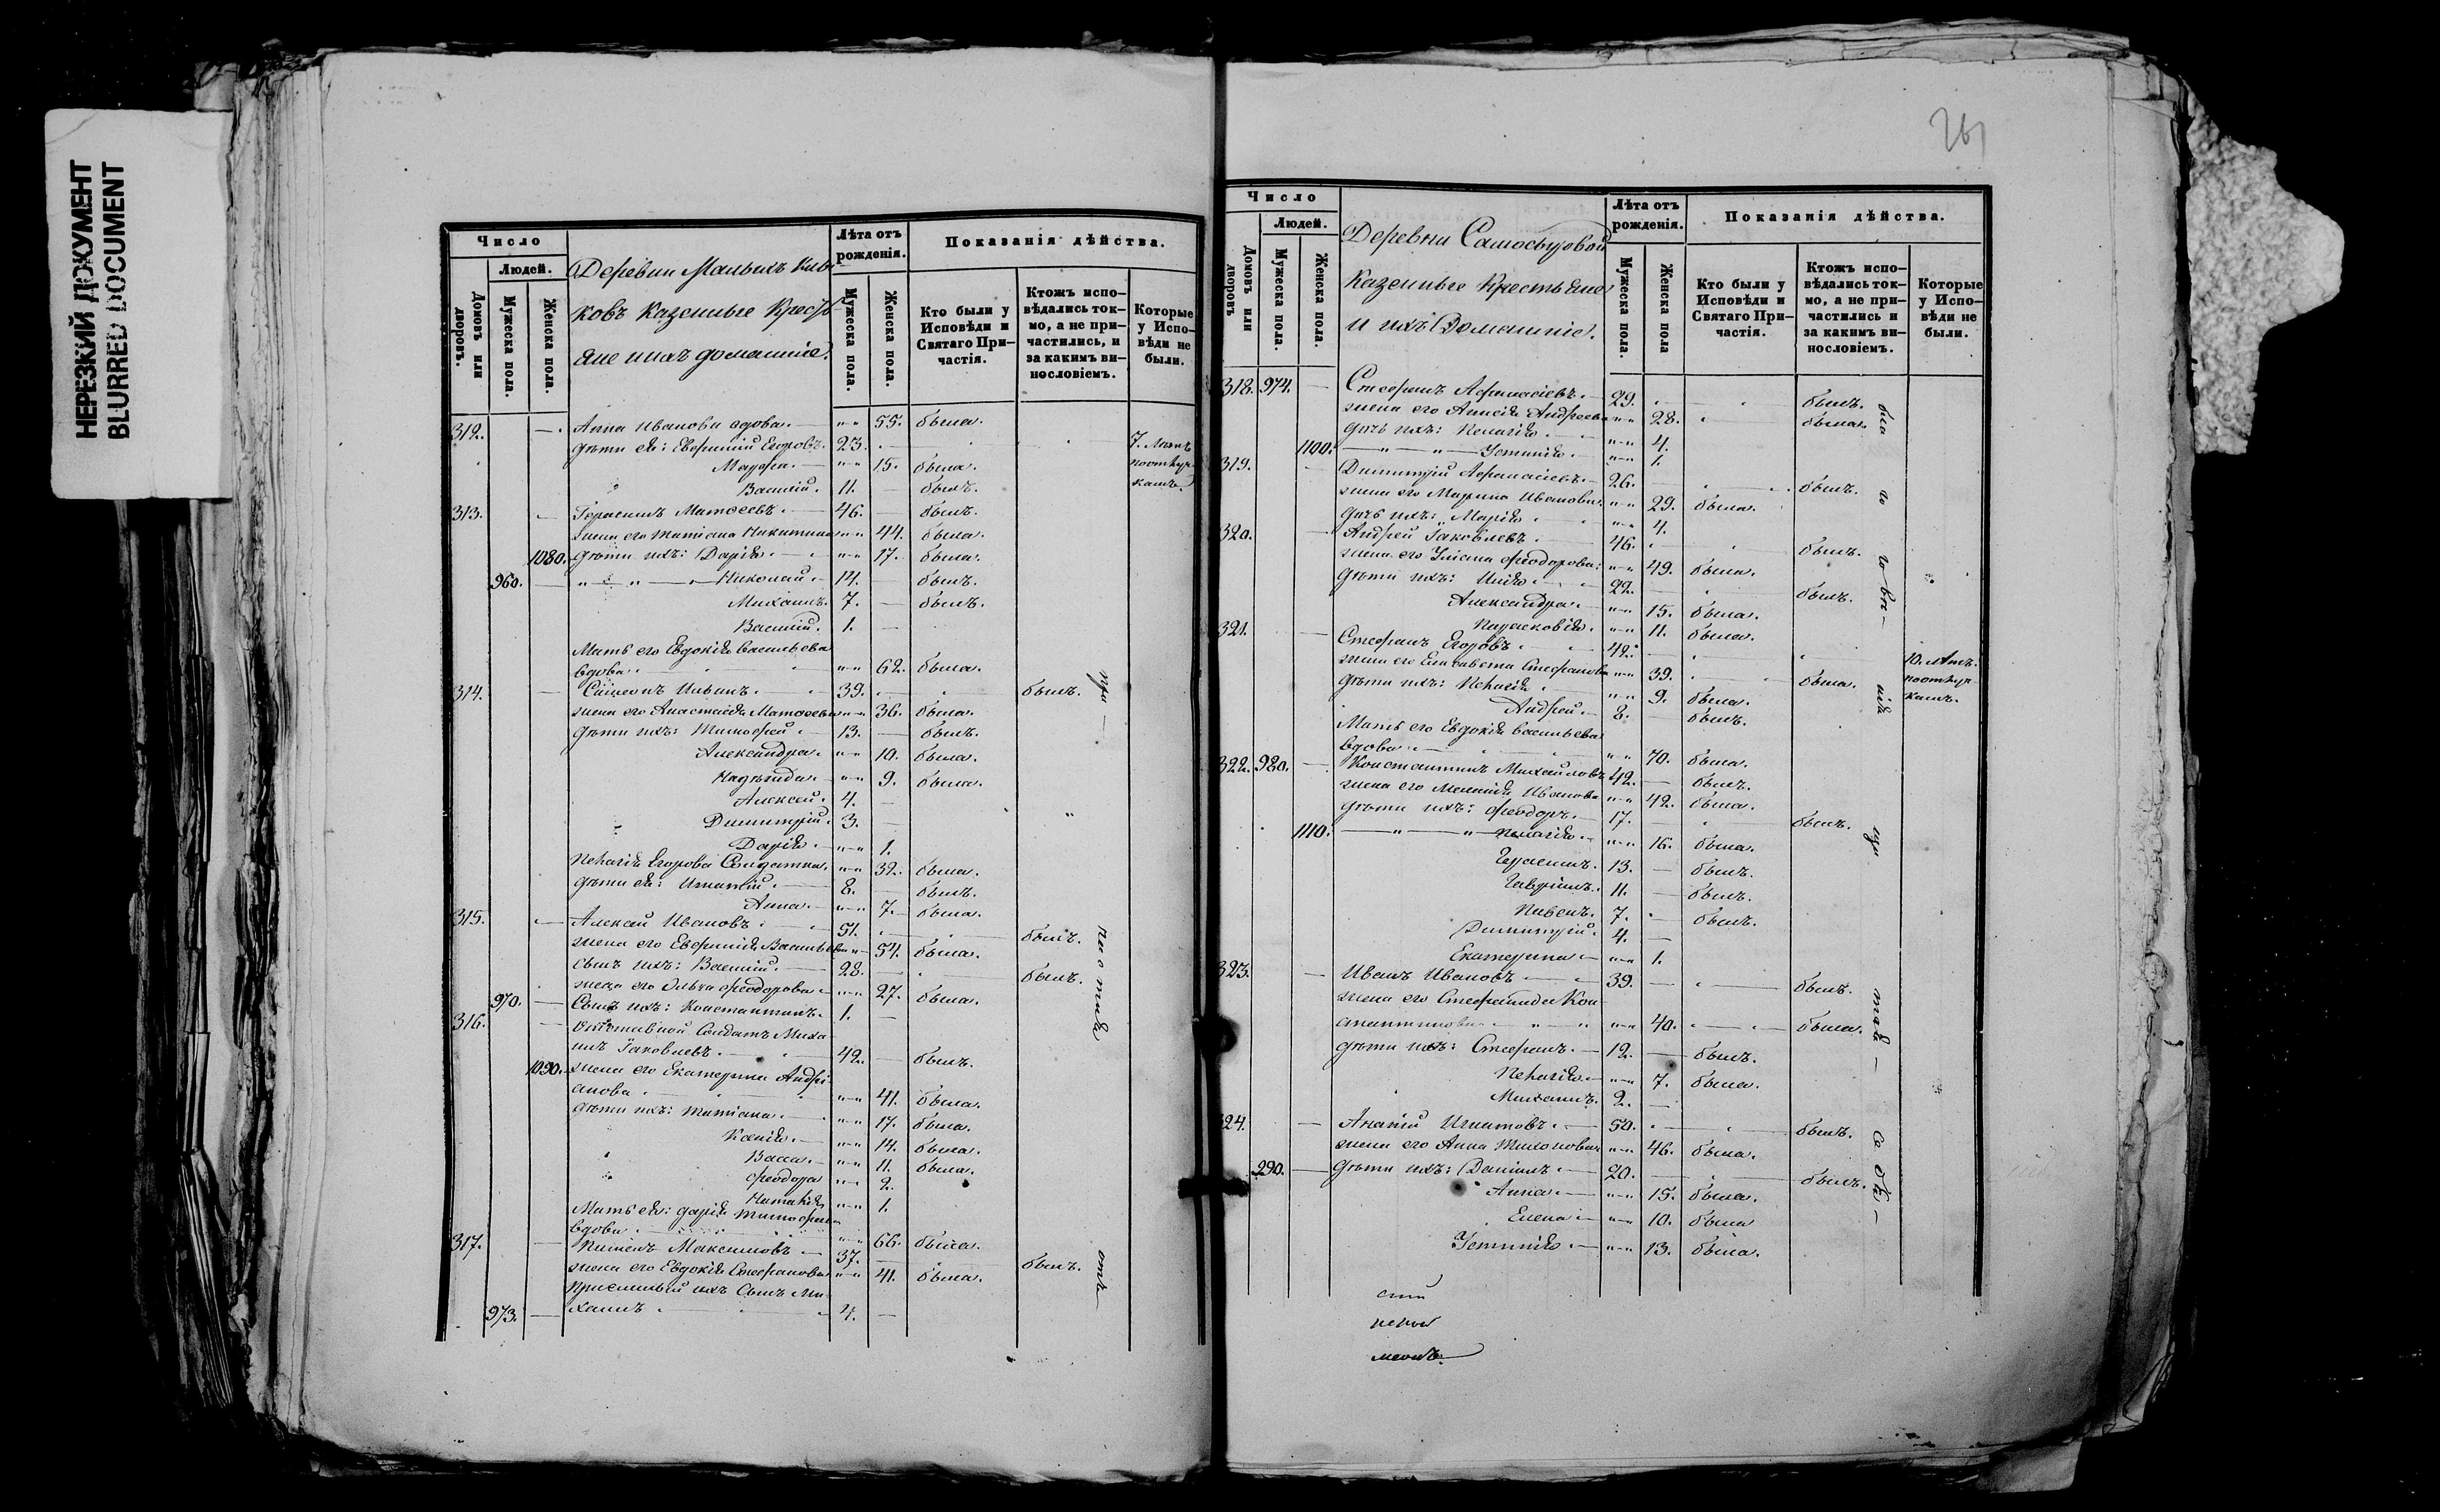 НЕРЕЗКИЙ ДОКУМЕНТ
BLURRED DOCUMENT
Число
Людей.
Домовъ или дворовъ.
Мужеска пола.
Женска пола.
Деревни Малыхъ
ковъ Казенные Кресть
яне и ихъ домашніе.
Лѣта отъ рожденія.
Мужеска пола.
Женска пола.
Показанія дѣйства.
Кто были у Исповѣди и Святаго Причастія.
Ктожъ исповѣдались токмо, а не причастились, и за какимъ винословіемъ.
Которые у Исповѣди не были.
312. Анна Иванова вдова. 55. была.
дѣти ея: Евфимій Егоровъ. 23. 7. Лѣтъ
Марфа. 15. была.
Василій. 11. былъ.
313. Герасимъ Матѳеевъ. 46. былъ.
жена его Татіана Никитина 44. была.
1080. дѣти ихъ: Дарія. 17. была.
960. Николай 14. былъ.
Михаилъ. 7. былъ.
Василій. 1.
Мать его Евдокія Васильева
вдова. 62. была.
314. Симеонъ Ильинъ. 39. былъ.
жена его Анастасія Матѳеева 36. была.
дѣти ихъ: Тимофей. 13. былъ.
Александра. 10. была.
Надежда. 9. была.
Алексей. 4.
Димитрій. 3.
Дарія. 1.
Пелагія Егорова Солдатка. 32. была.
дѣти ея: Игнатій. 8. былъ.
Анна. 7. была.
315. Алексей Ивановъ. 51. былъ.
жена его Евфимія Васильева 54. была.
сынъ ихъ: Василій. 28. былъ.
жена его Ольга Феодорова 27. была.
970. Сынъ ихъ: Константинъ. 1.
316. Отставной Солдатъ Миха
илъ Іаковлевъ. 42. былъ.
1090. жена его Екатерина Андрі
анова. 41. была.
дѣти ихъ: Татіана. 17. была.
Ксенія. 14. была.
Васса. 11. была.
Феодора 2.
Наталія 1.
Мать ея: Дарія Тимофеева
вдова. 66. была.
317. Пименъ Максимовъ 37. былъ.
жена его Евдокія Стефанова 41. была.
Пріемный ихъ Сынъ Ми
973. хаилъ 4.
261
Число
Людей.
Домовъ или дворовъ
Мужеска пола.
Женска пола.
Деревни Самосудовой
Казенные Крестьяне
и ихъ Домашніе.
Лѣта отъ рожденія.
Мужеска пола.
Женска пола
Показанія дѣйства.
Кто были у Исповѣди и Святаго Причастія.
Ктожъ исповѣдались токмо, а не причастились и за какимъ винословіемъ.
Которые у Исповѣди не были.
318. 974. Стефанъ Афанасіевъ. 29. былъ.
жена его Анисія Андреева 28. была.
дочь ихъ: Пелагія 4.
1100. Устинія. 1.
319. Димитрій Афанасіевъ. 26. былъ.
жена его Марина Иванова. 29. была.
дочь ихъ: Марія 4.
320. Андрей Іаковлевъ. 46. былъ.
жена его Уліана Феодорова. 49. была.
дѣти ихъ: Илія 22. былъ.
Александра. 15. была.
Парасковія. 11. была.
321. Стефанъ Егоровъ. 42. 10. Лѣтъ.
жена его Елисавета Стефанова 39. была.
дѣти ихъ: Пелагія 9. была.
Андрей. 8. былъ.
Мать его Евдокія Васильева
вдова. 70. была.
322. 980. Константинъ Михайловъ 42. былъ.
жена его Меланія Иванова 42. была.
дѣти ихъ: Феодоръ. 17. былъ.
1110. Пелагія 16. была.
Герасимъ. 13. былъ.
Гавріилъ. 11. былъ.
Пименъ. 7. былъ.
Димитрій. 4.
Екатерина 1.
323. Иванъ Ивановъ 39. былъ.
жена его Стефанида Кон
стантинова 40. была.
дѣти ихъ: Стефанъ. 12. былъ.
Пелагія 7. была.
Михаилъ. 2.
324. Ананій Игнатовъ. 50. былъ.
жена его Анна Тихонова 46. была.
990. дѣти ихъ: Даніилъ 20. былъ.
Анна. 15. была.
Елена 10. была
Устинія 13. была.